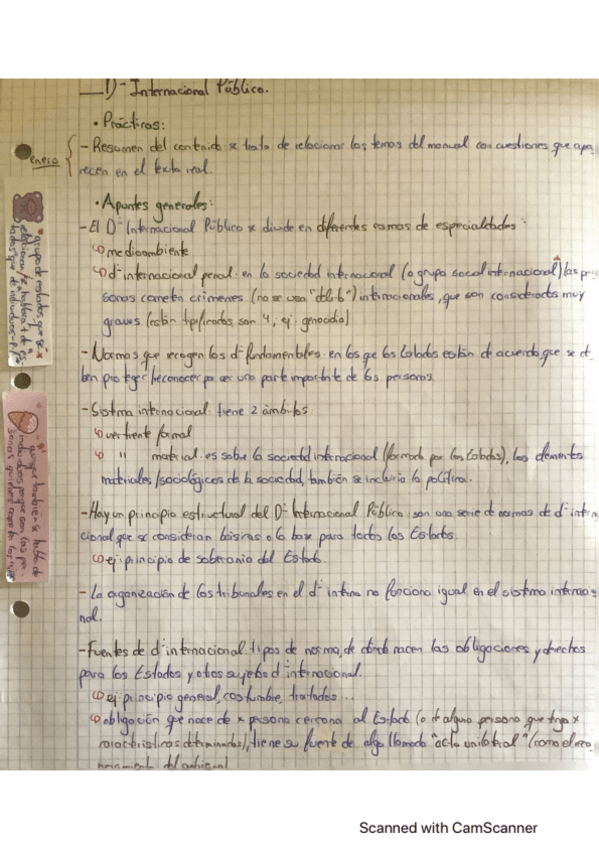 D- Internacional Público.
• Prácticas:
enero
- Resumen del contenido se trata de relacionar los temas del manual con cuestiones que apa
recen en el texto real.
• Apuntes generales:
- El Dº Internacional Público se divide en diferentes ramas de especialidades:
medioambiente
dº internacional penal: en la sociedad internacional (o grupo social internacional) las per
sonas cometen crímenes (no se usa "delito") internacionales, que son considerados muy
graves (están tipificados, son 4, ej: genocidio)
- Normas que recogen los dº fundamentales: en los que los Estados están de acuerdo que se d
ben proteger/reconocer por ser una parte importante de las personas.
- Sistema internacional: tiene 2 ámbitos
vertiente formal
" material: es sobre la sociedad internacional (formada por los Estados), los elementos
materiales/sociológicos de la sociedad, también se incluiría la política.
- Hay un principio estructural del Dº Internacional Público: son una serie de normas de dº intern
cional que se consideran básicas o la base para todos los Estados.
ej: principio de soberanía del Estado.
- La organización de los tribunales en el dº interno no funciona igual en el sistema internacio
nal.
- Fuentes de dº internacional: tipos de norma, de donde nacen las obligaciones y derechos
para los Estados y otros sujetos dº internacional.
ej: principio general, costumbre, tratados...
obligación que nace de x persona cercana al Estado (o de alguna persona que tenga x
características determinadas), tiene su fuente de algo llamado "acto unilateral" (como el
Scanned with CamScanner